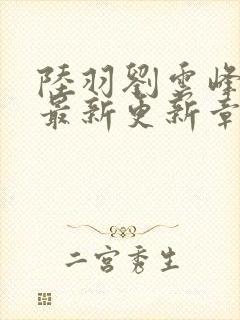 陸羽劉雲峰
最新更新章
二宮秀生